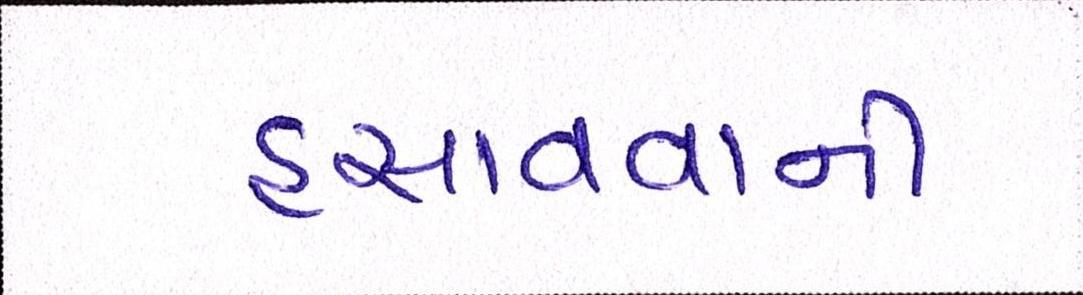 હસાવવાની